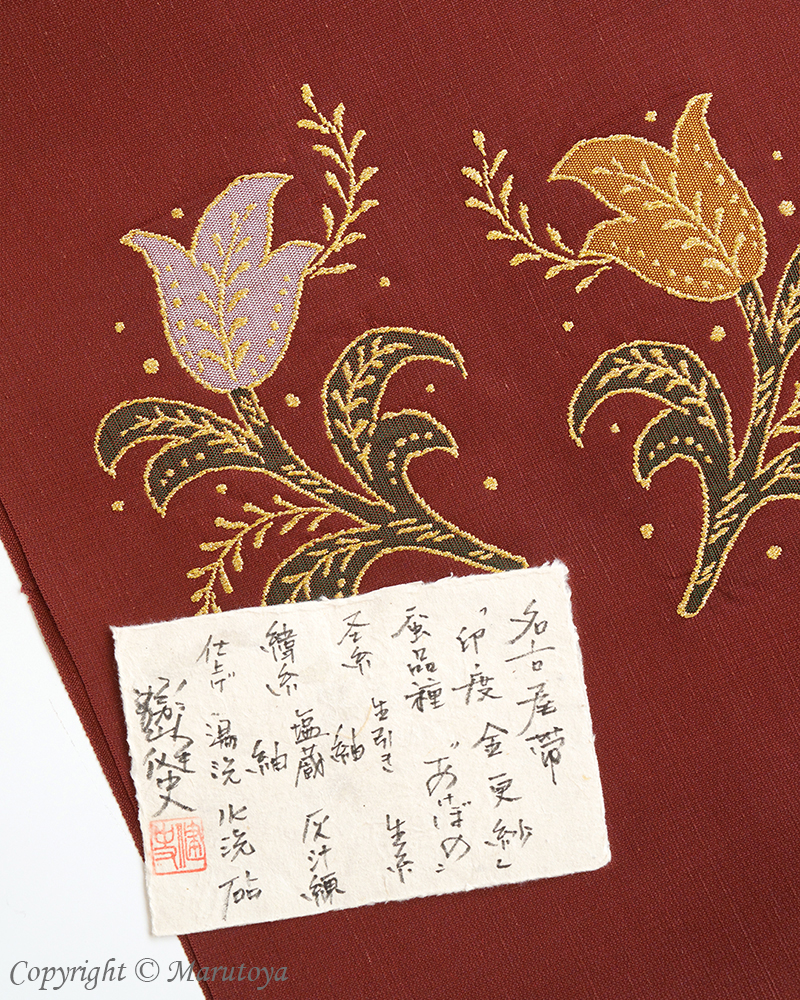 名古屋帯
「印度 金更紗」
蚕品種 “あけぼの”
圣糸 生引き 生糸
紬
緯糸 塩蔵 灰汁練
紬
仕上げ 湯洗 水洗 砧
Copyright © Marutoya